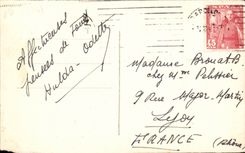 Affectueuses
pensées de
Hulda - Odette
Madame Brouat B.
chez Mme Pelissier
9 Rue Major Martin
Lyon
FRANCE (Rhône)
45